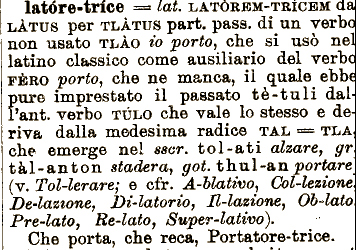 latóre-tríce = lat. LATÒREM-TRÍCEM da
LÀTUS per TLÀTUS part. pass. di un verbo
non usato TLÀO io porto, che si usò nel
latino classico come ausiliario del verbo
FÈRO porto, che ne manca, il quale ebbe
pure imprestato il passato tè-tuli dal-
l'ant. verbo TÚLO che vale lo stesso e de-
riva dalla medesima radice TAL = TLA,
che emerge nel sscr. tol-ati alzare, gr.
tàl-anton stadera, got. thul-an portare
(v. Tol-lerare; e cfr. A-blativo, Col-lezione,
De-lazione, Di-latorio, Il-lazione, Ob-lato,
Pre-lato, Re-lato, Super-lativo).
Che porta, che reca, Portatore-trice.